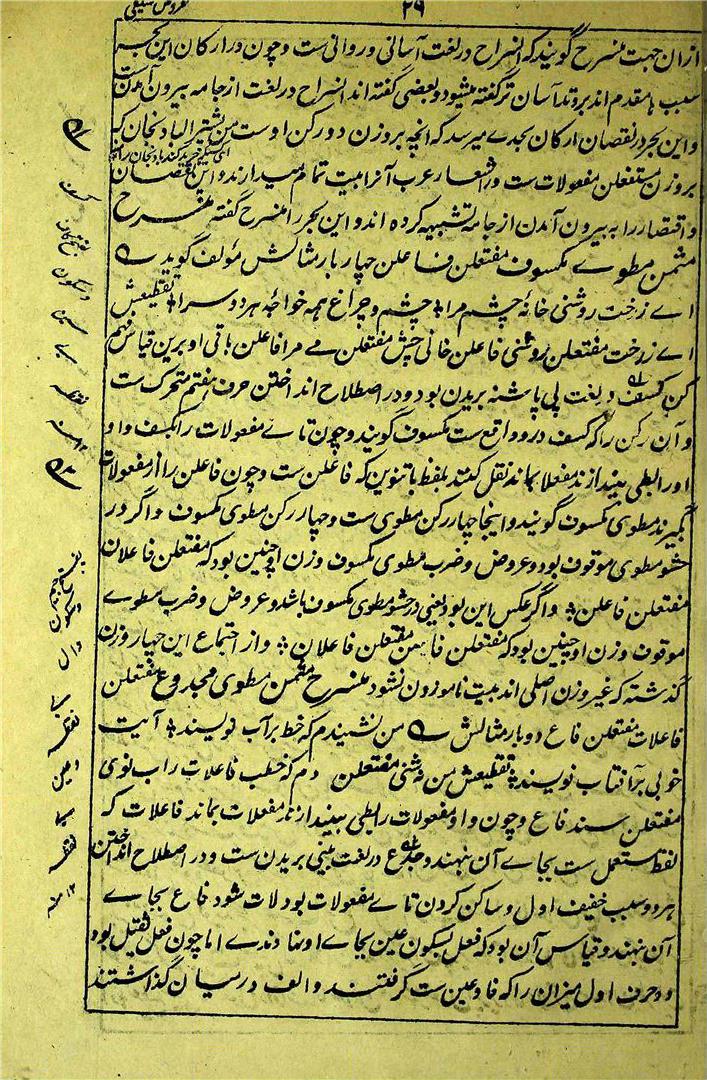 ۲۹
عروض سیفی
ازان جهت منسرح گویند که انسراح در لغت آسانی و روانی ست و چون در ارکان این بحر
سبب ها مقدم اند بر وتد آسان تر گفته میشود و بعضی گفته اند انسراح در لغت از جامه بیرون آمدن ست
و این بحر در نقصان ارکان بحدے میرسد که آنچه بر وزن دو رکن اوست من یشتر الباذنجان که
ای کیست که خرید کند بادنجان را
بر وزن مستفعلن مفعولات ست در اشعار عرب آنرا بیت تمام میدارند و این نقصان
و اقتصار را به بیرون آمدن از جامه تشبیه کرده اند و این بحر را منسرح گفته منسرح
مثمن مطوے مکسوف مفتعلن فاعلن چهار بار مثالش مؤلف گوید
اے ز رخت روشنی خانۀ چشم مرا چشم و چراغ همه خواجۀ هر دو سرا تقطیعش
اے ز رخت مفتعلن روشنی فاعلن خانۀ چش مفتعلن مے مرا فاعلن باقی او برین قیاس فهم
کن کسف در لغت پی پاشنه بریدن بود و در اصطلاح انداختن حرف هفتم متحرک ست
و آن رکن را که کسف درو واقع ست مکسوف گویند و چون تاے مفعولات را بکسف و واو
او را بطی بیندازند مفعلا بماند نقل کنند بلفظ باتنوین که فاعلن ست و چون فاعلن را از مفعولات
گیرند مطوی مکسوف گویند و اینجا چهار رکن مطوی ست و چهار رکن مطوی مکسوف و اگر در
حشو مطوی موقوف بود و عروض و ضرب مطوی مکسوف وزن او چنین بود که مفتعلن فاعلان
مفتعلن فاعلن و اگر عکس این بود یعنی در حشو مطوی مکسوف باشد و عروض و ضرب مطوے
موقوف وزن او چنین بود که مفتعلن فاعلن مفتعلن فاعلان و از اجتماع این چهار وزن
گذشته که غیر وزن اصلی اند بیت ناموزون نشود منسرح مثمن مطوی مجدوع مفتعلن
فاعلات مفتعلن فاع دو بار مثالش من نشنیدم که خط بر آب نویسند آیت
خوبی بر آفتاب نویسند تقطیعش من نشنی مفتعلن دم که خط ب فاعلات راب نوی
مفتعلن سند فاع و چون واو مفعولات را بطی بیندازند مفعلات بماند فاعلات که
لفظ مستعمل ست بجاے آن نهند و جدع در لغت بینی بریدن ست و در اصطلاح انداختن
هر دو سبب خفیف اول و ساکن کردن تاے مفعولات بود لات شود فاع بجاے
آن نهند و قیاس آن بود که فعل بسکون عین بجاے او نهادندے اما چون فعل ثقیل بود
دو حرف اول میزان را که فا و عین ست گرفتند و الف در میان گذاشتند